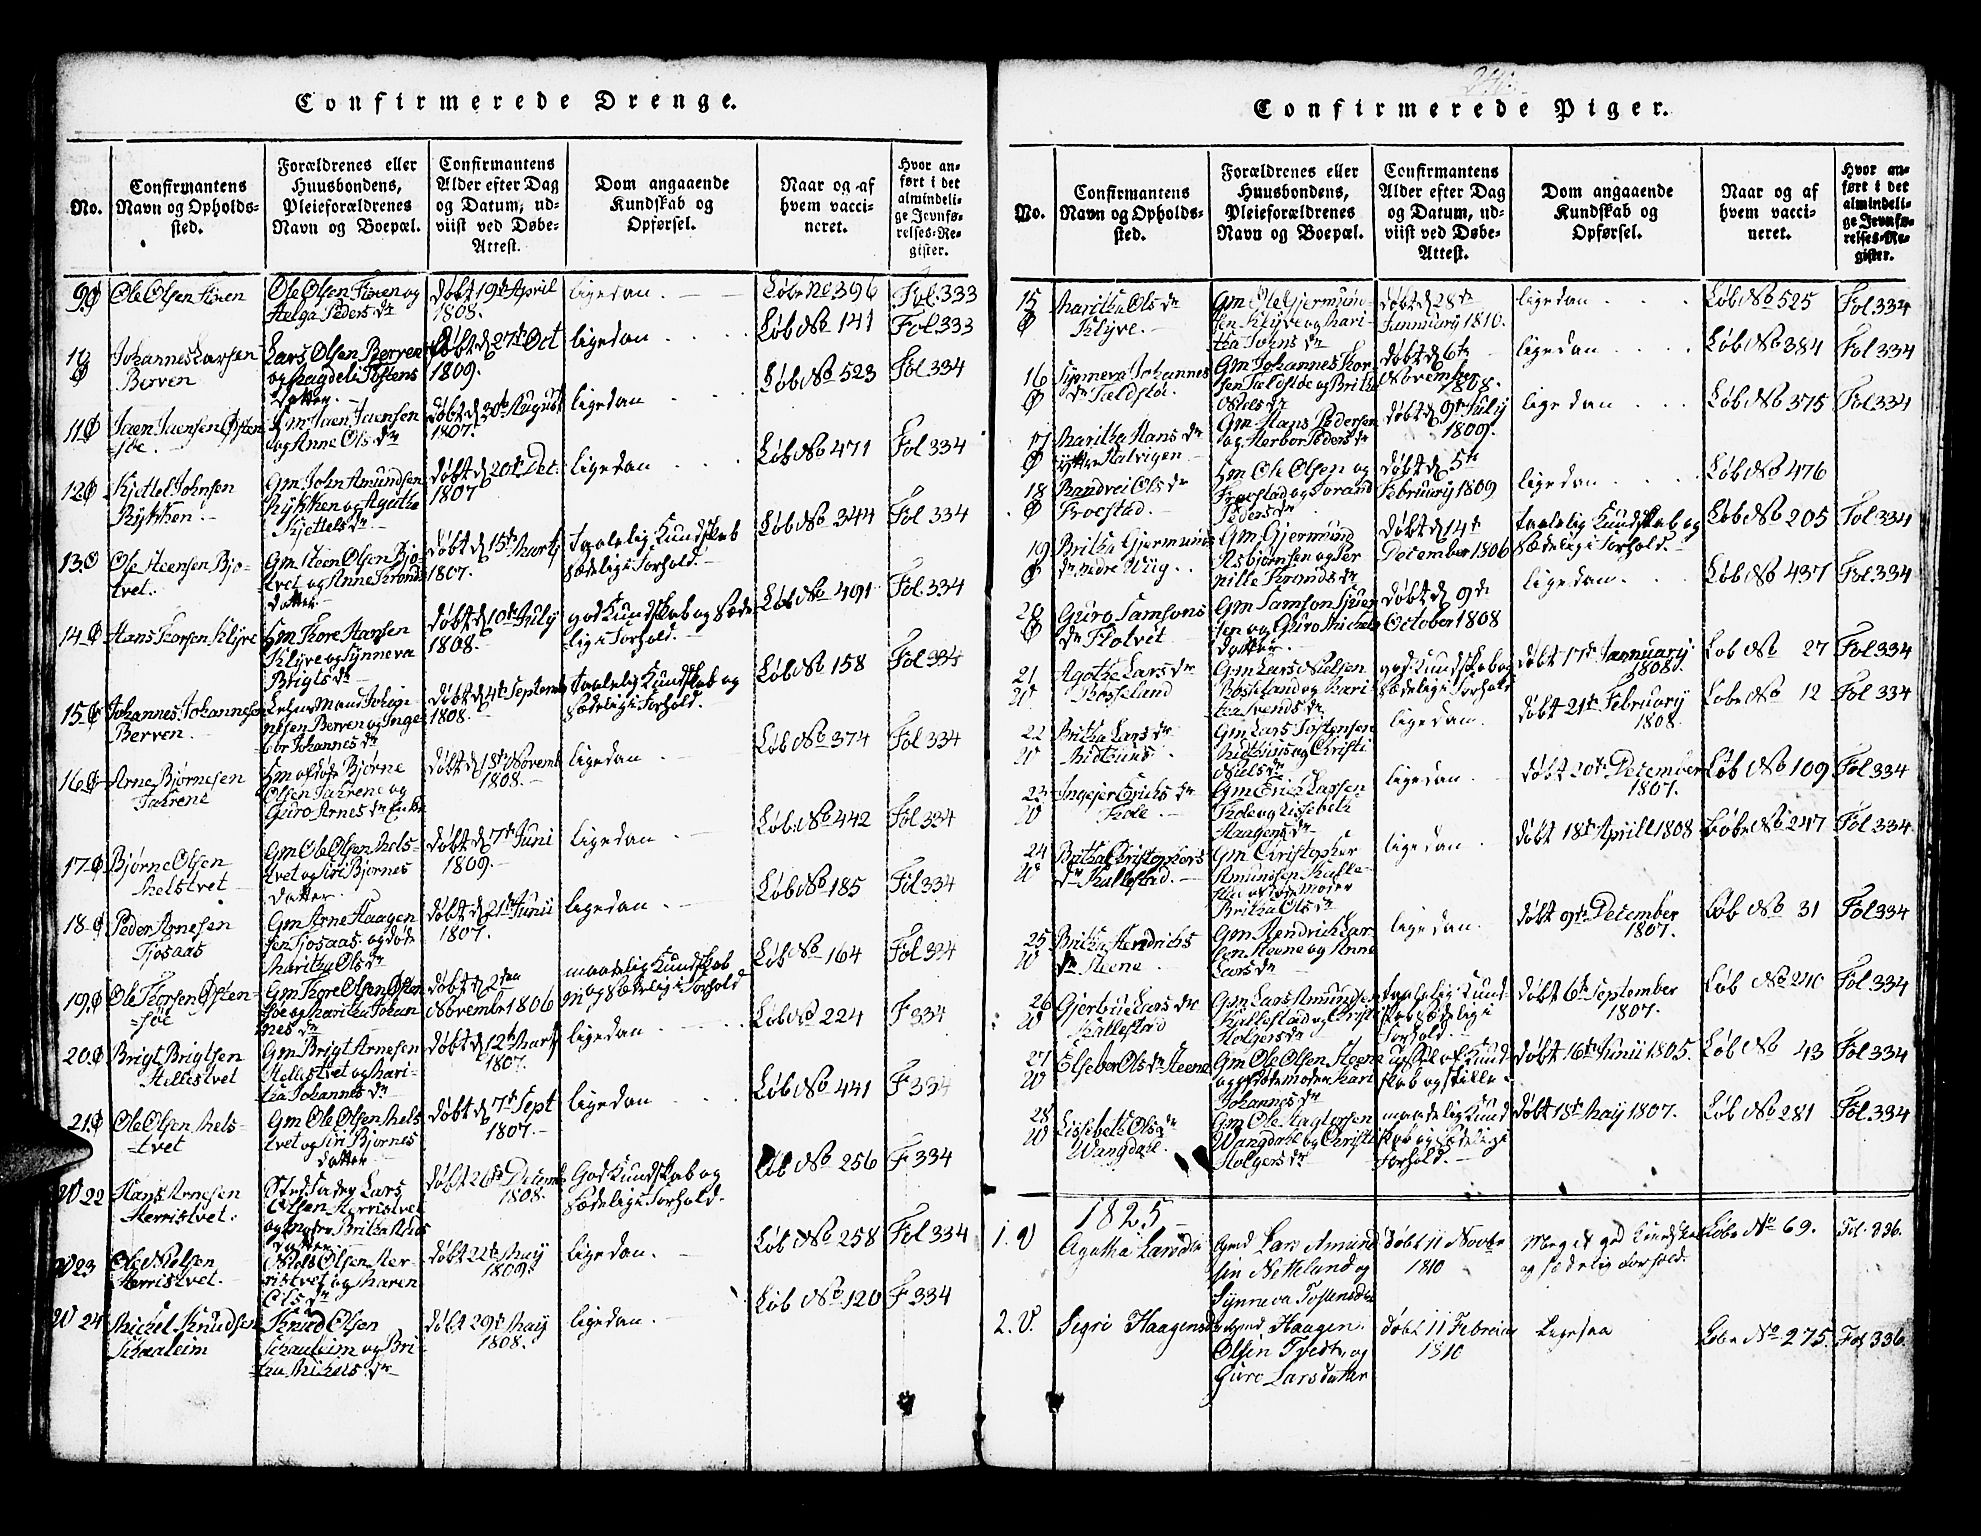 Confirmerede Drenge.
No.
Confirmantens
Navn og Opholds-
sted.
Forældrenes eller
Huusbondens,
Pleieforældrenes
Navn og Boepæl.
Confirmantens
Alder efter Dag
og Datum, ud-
viist ved Døbe-
Attest.
Dom angaaende
Kundskab og
Opførsel.
Naar og af
hvem vacci-
neret.
Hvor an-
ført i det
almindeli-
ge Jevnfø-
relses-Re-
gister.
9 Ole Olsen
Ole Olsen og
Helga Peders dr
døbt 19de April
1808.
ligedan.
Løb No 396
Fol. 333
10 Johannes Larsen
Berven
Lars Olsen Berven
og Tostens
datter.
døbt d 27de Oct
1809.
ligedan
Løb No 141
Fol. 333
11 Jaen Jaensen Østen-
søe.
Jaen Jaensen
og Anne Ols dr
døbt d 30te August
1807.
ligedan
Løb No 523
Fol 334
12 Kjettel Johnsen
Rykken.
Gm John Amundsen
Rykken og Agatha
Kjettels dr
døbt d 20de Dec.
1807
ligedan
Løb No 471
Fol 334
13. Ole Steensen Bjø-
tvet.
Gm Steen Olsen Bjø-
tvet og Anne
datter
døbt d 15de Marty
1807.
taalelig Kundskab
sædelig i Forhold.
Løb No 344
Fol 334
14. Hans Thorsen Klyve
Gm Thore Hansen
Klyve og Synneva
Brigts dr
døbt d 10de July
1808.
god Kundskab og Sæde-
lig i Forhold.
Løb No 491
Fol 334
15 Johannes Johannesen
Berven.
Johan-
nesen Berven og Inge-
bor Johannes dr
døbt d 4de Septemb
1808.
taalelig Kundskab og
sædelig i Forhold.
Løb No 158
Fol 334
16 Arne Bjørnesen
Bjørne
Olsen og
Guro Arnes dr
døbt d 13de Novemb
1808.
ligedan.
Løb No 374
Fol 334
17. Bjørne Olsen
Melstvet
Gm Ole Olsen Mels-
tvet og Siri Bjørnes
datter.
døbt d 7de Juni
1809.
ligedan
Løb No 442
Fol 334
18 Peder Arnesen
Tjosaas
Gm Arne Haagen-
sen Tjosaas og døde
Maritha Ols dr
døbt d 21de Junii
1807.
ligedan
Løb No 185
Fol 334
19 Ole Thorsen Østen-
søe
Gm Thore Olsen Østen
søe og Maritha Johan
nes dr
døbt d 2den
November 1806
maadelig Kundskab
og Sædelig i Forhold
Løb No 164
Fol 334
20 Brigt Brigtsen
Hellestvet
Gm Brigt Arnesen
Hellestvet og Mari-
tha Johannes dr
døbt d 12te Marty
1807.
ligedan
Løb No 224
F 334
21 Ole Olsen Mels-
tvet
Gm Ole Olsen Mels
tvet og Siri Bjørnes
datter
døbt d 7de Sept
1807.
ligedan
Løb No 441
F 334
22 Hans Arnesen
Herristvet.
Stedfader Lars
Olsen Herristvet
og Moder Britha
datter
døbt 26de Decemb
1808.
God Kundskab og
sædelig i Forhold.
Løb No 256
F 334
23 Ole Nielsen
Herristvet.
Niels Olsen Her-
ristvet og Maren
Ols dr
døbt 22de May
1809.
ligedan.
Løb No 258
Fol 334
24 Michel Knudsen
Skaaleim
Knud Olsen
Skaaleim og Bri-
tha Michels dr
døbt 29de May
1808.
ligedan.
Løb No 120
F 334
Confirmerede Piger.
No.
Confirmantens
Navn og Opholds-
sted.
Forældrenes eller
Huusbondens,
Pleieforældrenes
Navn og Boepæl.
Confirmantens
Alder efter Dag
og Datum, ud-
viist ved Døbe-
Attest.
Dom angaaende
Kundskab og
Opførsel.
Naar og af
hvem vacci-
neret.
Hvor an-
ført i det
almindeli-
ge Jevnfø-
relses-Re-
gister.
15 Maritha Ols dr
Klyve.
Gm Ole Gjermun-
sen Klyve og Mari-
tha Johns dr
døbt d 28de
Januuary 1810.
ligedan
Løb No 525
Fol 334
16 Synneva Johannes
dr
Gm Johannes Thor
sen og Britha
Niels dr
døbt d 6te
November
1808.
ligedan
Løb No 384
Fol 334
17 Maritha Hans dr
Gm Hans Pedersen
og Herbor Peders dr
døbt d 9de July
1809.
ligedan
Løb No 375
Fol 334
18 Randvei Ols dr
Froestad.
Gm Ole Olsen
Froestad og
Peders dr
døbt d 5te
Februury 1809
ligedan
Løb No 476
19 Britha Gjermunds
dr Wiig.
Gm Gjermund
Asbjørnsen og Per
nille
døbt d 14de
December 1806
taalelig Kundskab og
sædelig i Forhold.
Løb No 205
Fol 334
20 Guro Samsons
dr
Gm Samson
og Guro Michels
datter.
døbt d 9de
October 1808
ligedan.
Løb No 437
Fol 334
21 Agotha Lars dr
Røsseland
Gm Lars Nielsen
Røsseland og Mari
tha Svends dr
god Kundskab og
sædelig i Forhold
døbt 17de Jannuary
1808.
Løb No 27
Fol 334
22 Britha Lars dr
Gm Lars Tostensen
og Christi
Niels dr
ligedan.
døbt 21de Februury
1808.
Løb No 12
Fol 334
23 Ingejer Erichs dr
Gm Erich Larsen
og Lissebeth
Haagens dr
ligedan
døbt 20de December
1807.
Løb No 109
Fol 334
24 Britha Christophers
dr Kallestad.
Gm Christopher
Amundsen Kalle-
Moder
Britha Ols dr
ligedan
døbt 18de Aprill 1808
Løb No 247
Fol 334
25 Britha Hendrichs
dr Steene.
Gm Hendrich Lar-
sen Steene og Anne
Lars dr
ligedan
døbt 9de December
1807.
Løb No 31
Fol 334
26 Lars dr
Kallestad
Gm Lars Amundsen
Kallestad og Christi
Holgers dr
taalelig Kund
skab sædelig i
Forhold.
døbt 6te September
1807.
Løb No 240
Fol 334
27 Elsebe Ols dr Steene
Gm Ole Olsen Steene
og døde moder Kari
Johannes dr
Kund
skab og stille
døbt 16de Junii 1805.
Løb No 43
Fol 334
28 Lissebeth Ols dr
Wangdahl.
Gm Ole
Wangdahl og Christi
Holgers dr
maadelig Kund
skab og sædelig i
Forhold.
døbt 18de May 1807.
Løb No 281
Fol 334
1825
1. V Agatha Larsdr
Lars Amund
sen Netteland og
Synneva Tostensdr
Døbt 11 Novbr
1810
Meget god Kundskab
og sædelig Forhold.
Løbe No 69.
Fol. 336.
2. V. Segri Haagensdr
Haagen
Olsen Tvedt og
Guro Larsdatter
døbt 11 Februar
1810
Ligesaa
Løbe No 275.
Fol 336.